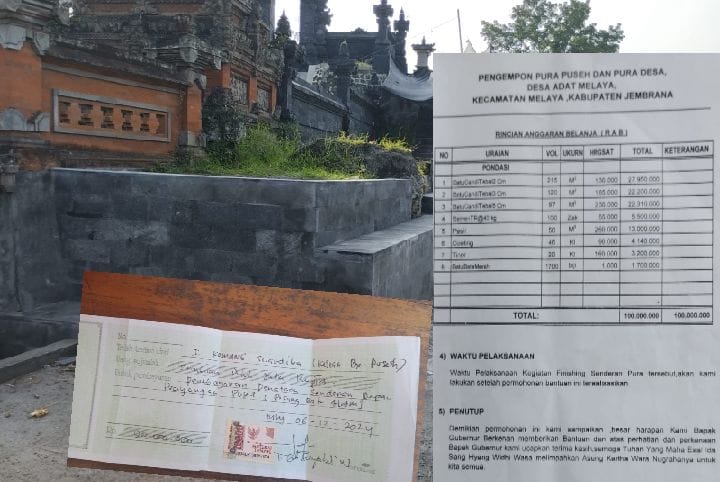 PENGEMPON PURA PUSEH DAN PURA DESA,
DESA ADAT MELAYA,
KECAMATAN MELAYA ,KABUPATEN JEMBRANA
RINCIAN ANGGARAN BELANJA ( R.A.B)
NO URAIAN VOL UKURN HRGSAT TOTAL KETERANGAN
PONDASI
1 BatuCandiTebal2 Cm 215 M² 130.000 27.950.000
2 BatuCandiTebal3 Cm 120 M² 185.000 22.200.000
3 BatuCandiTebal5 Cm 97 M² 230.000 22.310.000
4 SemenTR@40 kg 100 Zak 55.000 5.500.000
5 Pasir 50 M³ 260.000 13.000.000
6 Coating 46 Kl 90.000 4.140.000
7 Tiner 20 Kl 160.000 3.200.000
8 BatuBataMerah 1700 biji 1.000 1.700.000
TOTAL: 100.000.000 100.000.000
4) WAKTU PELAKSANAAN
Waktu Pelaksanaan Kegiatan Finishing Senderan Pura tersebut,akan kami
lakukan setelah permohonan bantuan ini terealisasikan
5) PENUTUP
Demikian permohonan ini kami sampaikan ,besar harapan Kami Bapak
Gubernur Berkenan memberikan Bantuan dan atas perhatian dan perkenaan
Bapak Gubernur kami ucapkan terima kasih,semoga Tuhan Yang Maha Esa/ Ida
Sang Hyang Widhi Wasa melimpahkan Asung Kertha Wara Nugrahanya untuk
kita semua.
No.
Telah terima dari I Komang Suardika (Kelian Br. Puseh)
Uang sejumlah
Untuk pembayaran
Pembayaran Penataan Senderan Depan
Penyangga Puseh
06-12-2024
Rp